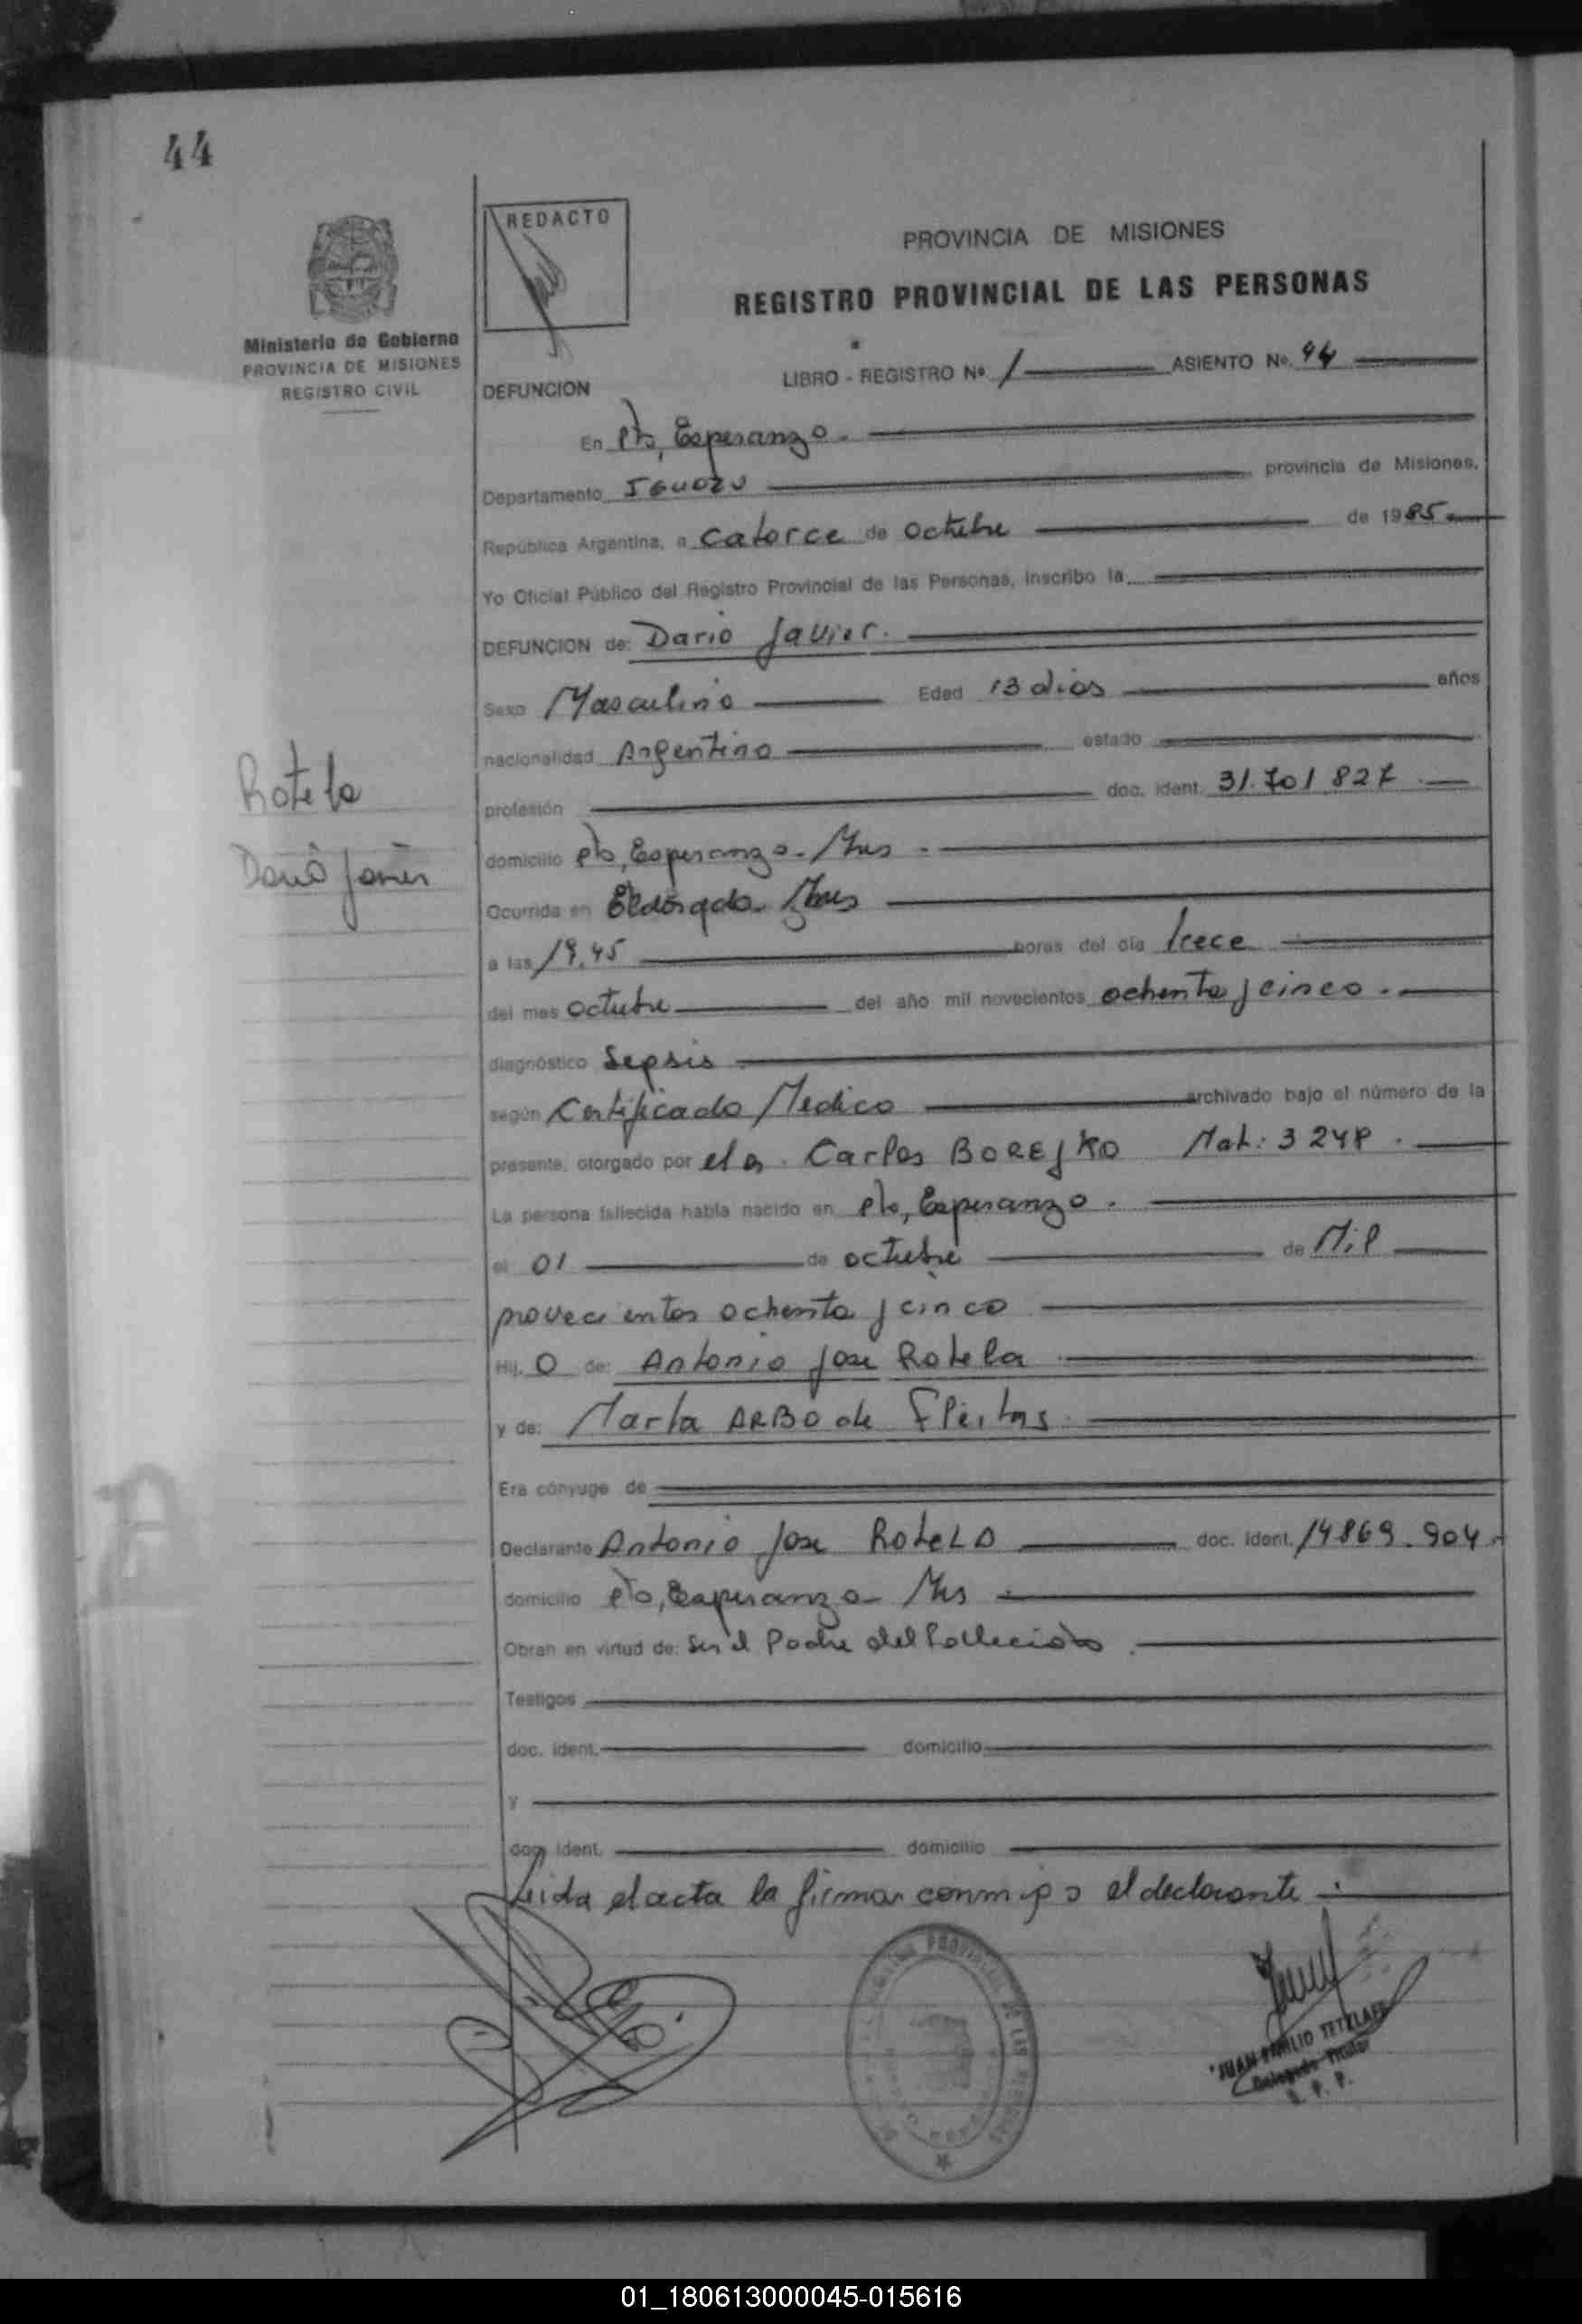 44
REDACTO
PROVINCIA DE MISIONES
REGISTRO PROVINCIAL DE LAS PERSONAS
Ministerio de Gobierno
PROVINCIA DE MISIONES
REGISTRO CIVIL
LIBRO - REGISTRO Nº 1 ASIENTO Nº 44
DEFUNCION
En Pto, Esperanza.
Departamento Iguazu provincia de Misiones.
República Argentina, a catorce de octubre de 1985
Yo Oficial Público del Registro Provincial de las Personas, inscribo la
DEFUNCION de: Dario Javier.
Sexo Masculino Edad 13 dias años
nacionalidad Argentino estado
Rotela
profesión doc. ident. 31.701.827
Dario Javier
domicilio Pto, Esperanza - Mnes
Ocurrida en Eldorado - Mnes
a las 19,45 horas del día trece
del mes octubre del año mil novecientos ochenta y cinco.
diagnóstico Sepsis
según Certificado Medico archivado bajo el número de la
presente, otorgado por el Dr. Carlos BOREJKO Mat: 3248.
La persona fallecida había nacido en Pto, Esperanza.
el 01 de octubre de Mil
novecientos ochenta y cinco
Hij. O de: Antonio Jose Rotela
y de: Marta ARBO de Fleitas
Era cónyuge de
Declarante Antonio Jose Rotela doc. ident. 14869.904
domicilio Pto, Esperanza - Mns
Obran en virtud de: Ser el Padre del Fallecido.
Testigos
doc. ident. domicilio
y
doc. ident. domicilio
Leida el acta la firman conmigo el declarante.
JUAN EMILIO TETZLAFF
Delegado Titular
R. P. P.
01_180613000045-015616